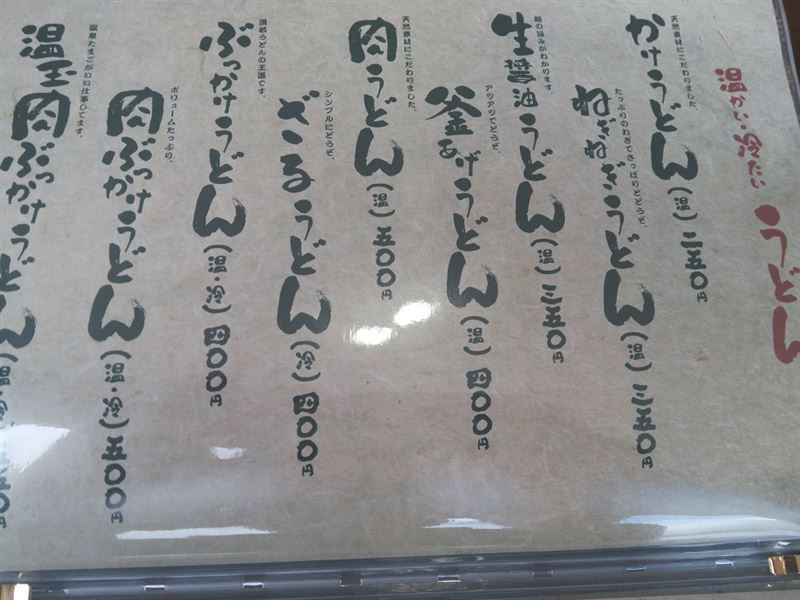 温かい・冷たい
うどん
天然素材にこだわりました。
かけうどん（温）二五〇円
たっぷりのねぎでさっぱりとどうぞ。
ねぎねぎうどん（温）三五〇円
麺の旨みがわかります。
生醤油うどん（温）三五〇円
アツアツでどうぞ。
釜あげうどん（温）四〇〇円
天然素材にこだわりました。
肉うどん（温）五〇〇円
シンプルにどうぞ。
ざるうどん（冷）四〇〇円
讃岐うどんの王道です。
ぶっかけうどん（冷・温）四〇〇円
ボリュームたっぷり。
肉ぶっかけうどん（冷・温）五〇〇円
温泉たまごがいい仕事してます。
温玉肉ぶっかけうどん（冷・温）